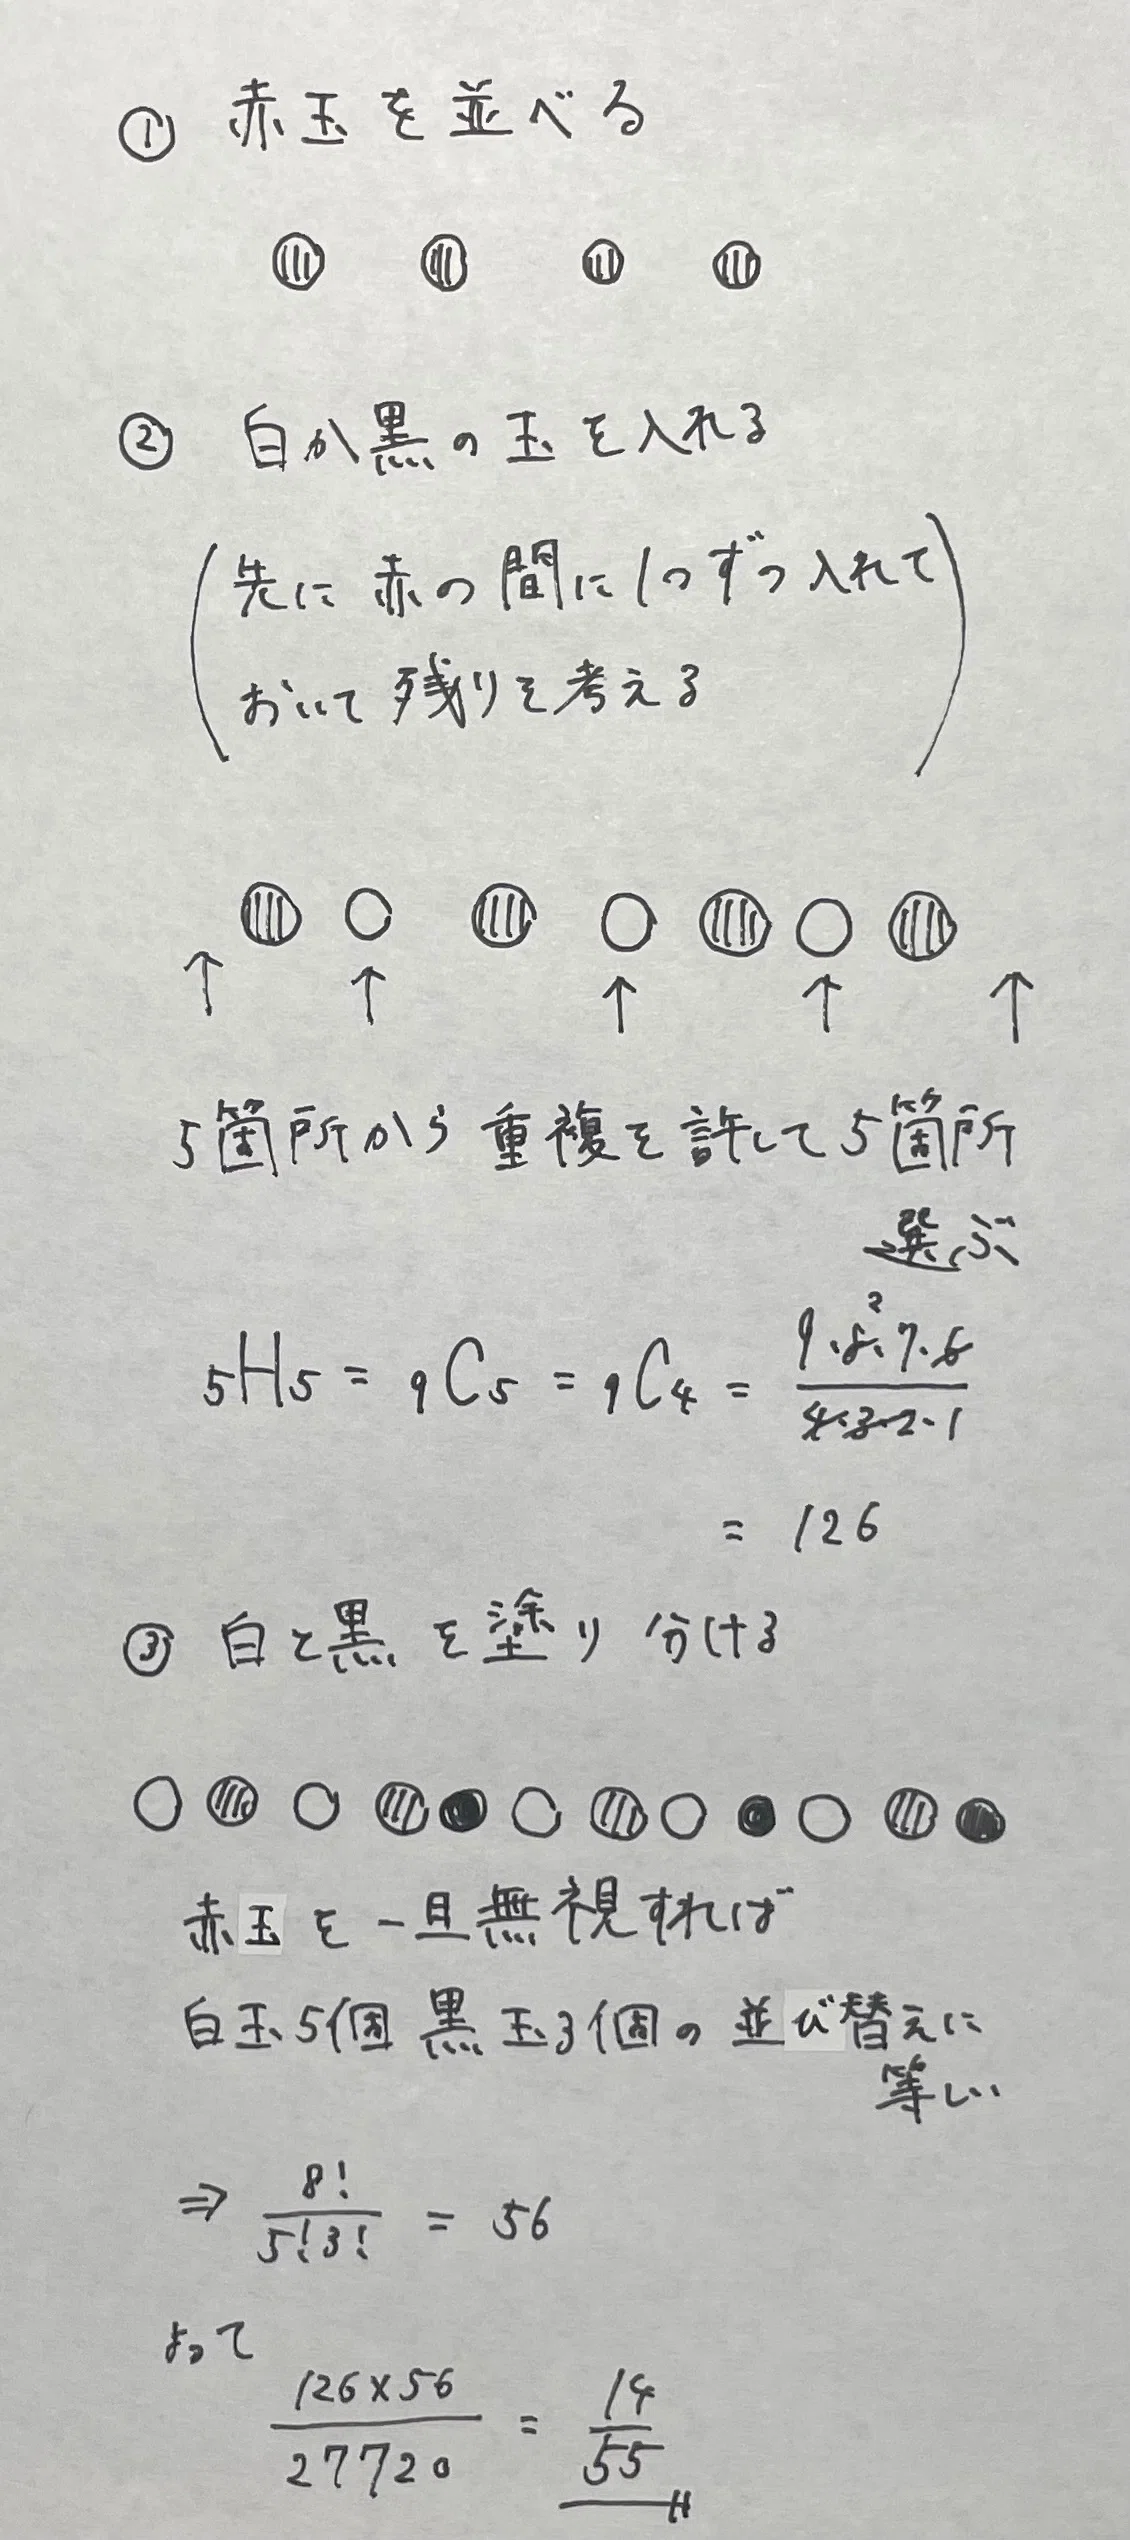 ① 赤玉を並べる
② 白か黒の玉を入れる
(先に赤の間に1つずつ入れて
おいて残りを考える)
↑ ↑ ↑ ↑ ↑
5箇所から重複を許して5箇所
選ぶ
₅H₅ = ₉C₅ = ₉C₄ = 9·8·7·6 / 4·3·2·1
2
= 126
③ 白と黒を塗り分ける
赤玉を一旦無視すれば
白玉5個黒玉3個の並び替えに
等しい
⇒ 8! / 5!3! = 56
よって
126×56 / 27720 = 14 / 55